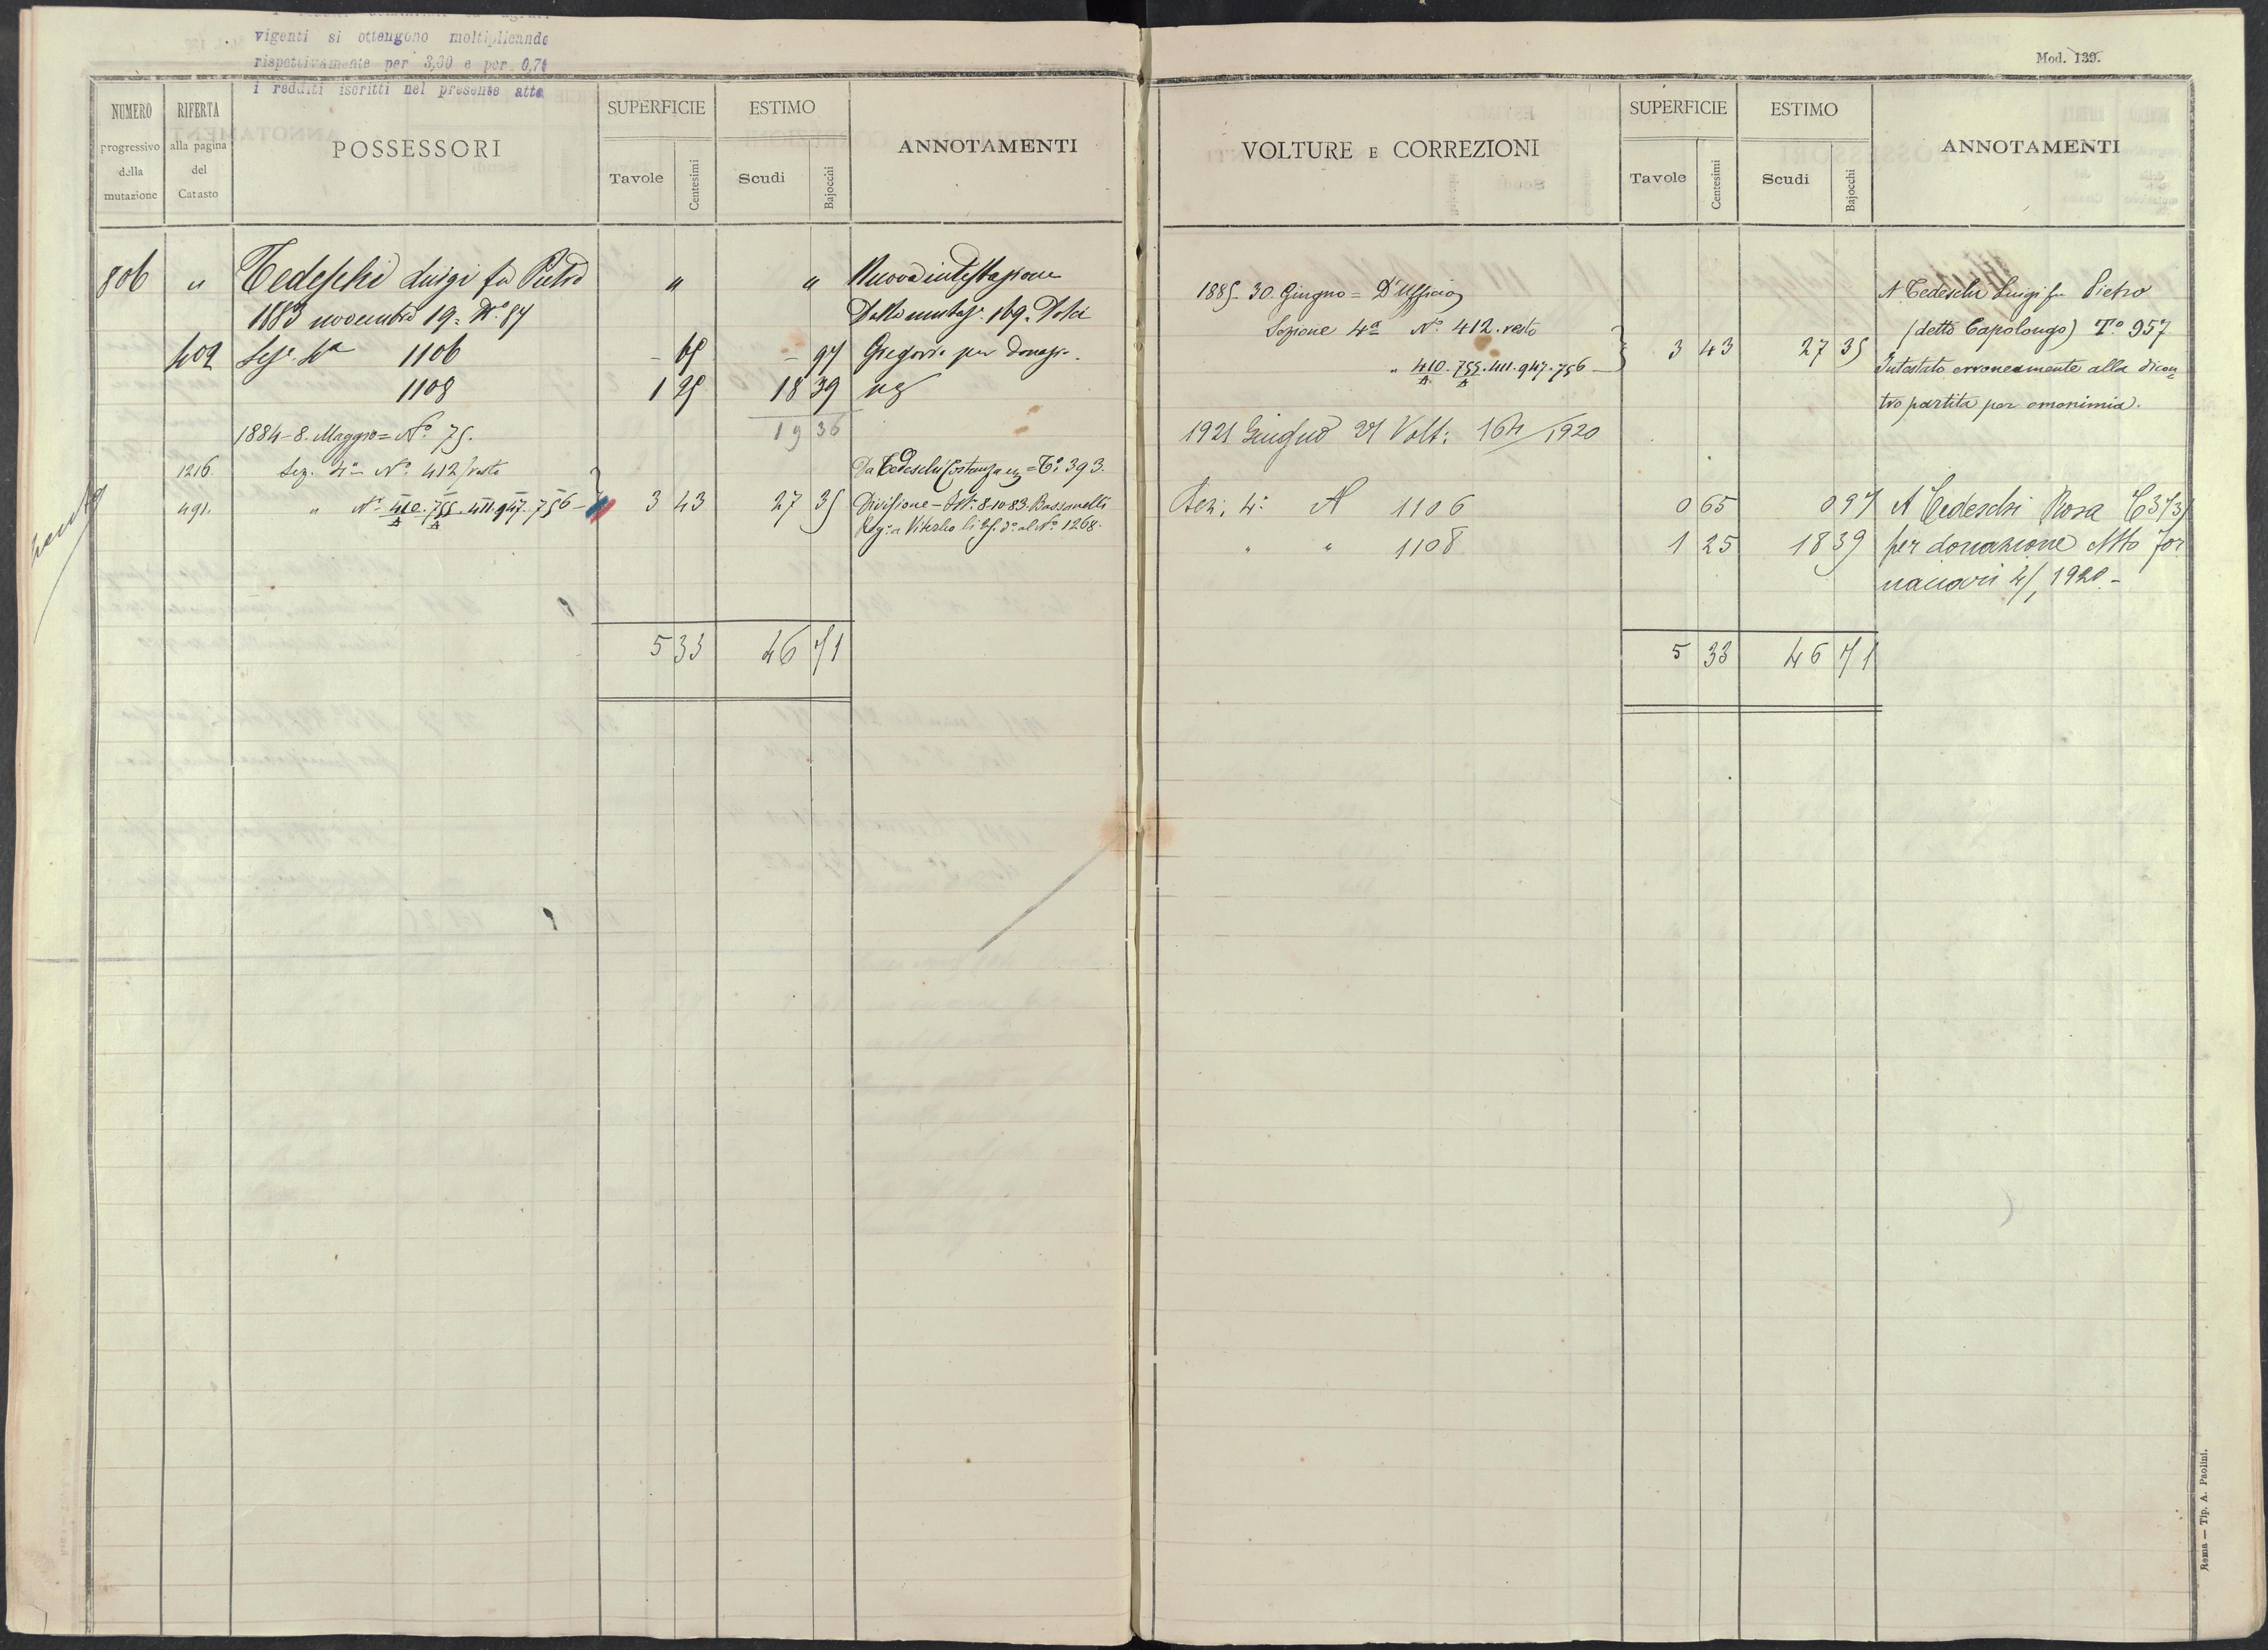 vigenti si ottengono moltiplicando
rispettivamente per 3,00 e per 0,74
i redditi iscritti nel presente atto
NUMERO
progressivo
della
mutazione
RIFERTA
alla pagina
del
Catasto
POSSESSORI
SUPERFICIE
Tavole
Centesimi
ESTIMO
Scudi
Bajocchi
ANNOTAMENTI
806 " Tedeschi Luigi fu Pietro " " Nuova intestazione
1883 novembre 19 = N.º 84 Dalla mutaz. 169. Dolci
402 Sez.e 4a 1106 - 65 - 97 Gregorio per donaz.
1108 1 25 18 39
1884 - 8. Maggio = Nº 75. 19 36
1216. Sez. 4a Nº 412/resto Da Tedeschi Costanza = Tº 393.
491. " Nº 410/A. 755/A. 411. 947. 756 - 3 43 27 35 Divisione - Ist. 8-10-83. Bassanelli
Reg. a Viterbo li al Nº 1268.
5 33 46 71
Mod. 139.
VOLTURE E CORREZIONI
SUPERFICIE
Tavole
Centesimi
ESTIMO
Scudi
Bajocchi
ANNOTAMENTI
1885 - 30. Giugno = D'Ufficio A Tedeschi Luigi fu Pietro
Sezione 4a Nº 412. resto (detto Capolongo) Tº 957
" 410/A. 755/A. 411. 947. 756 - 3 43 27 35 Intestato erroneamente alla dicon=
tro partita per omonimia.
1921 Giugno 27 Volt: 164/1920
Sez. 4a A 1106 0 65 0 97 A Tedeschi Rosa
" " 1108 1 25 18 39 per donazione Atto For
naciari 1920 -
5 33 46 71
Roma — Tip. A. Paolini.